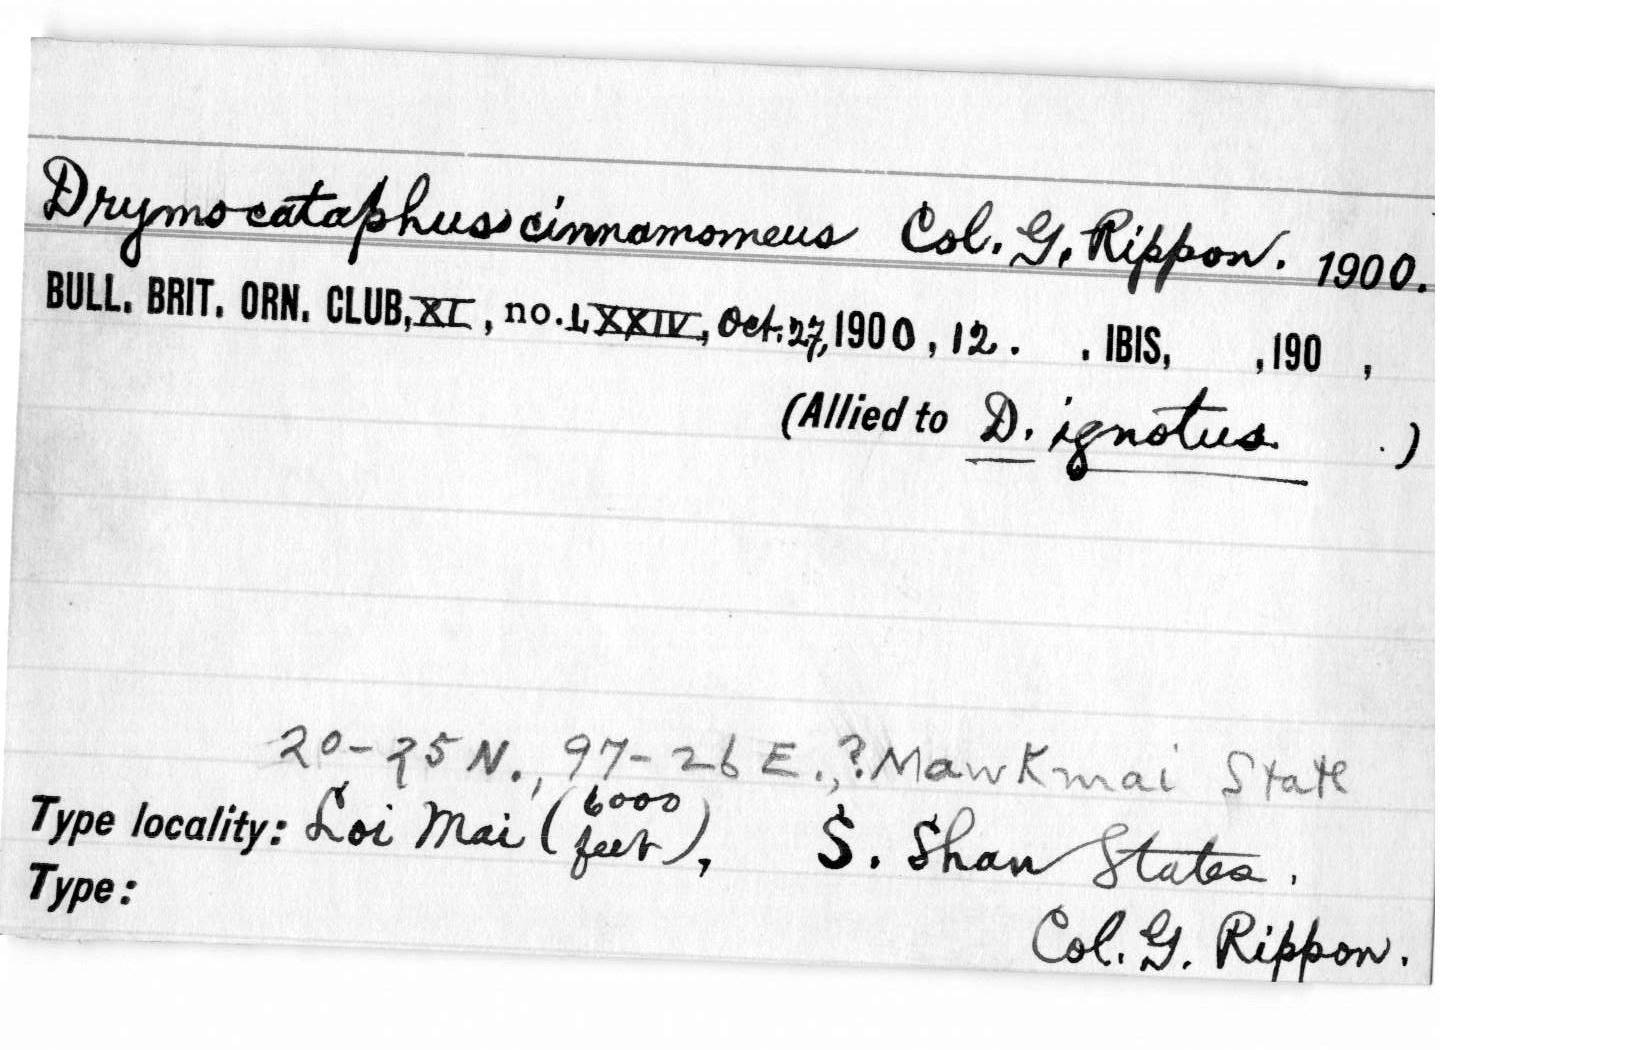 Drymocataphus cinnamomeus Col. G. Rippon. 1900.
BULL. BRIT. ORN. CLUB, XI, no. LXXIV, Oct. 27, 1900, 12. . IBIS, , 190 ,
(Allied to D. ignotus. .)
20-25 N., 97-26 E., ? Mawkmai State
Type locality: Loi Mai (6000 feet), S. Shan States.
Type:
Col. G. Rippon.